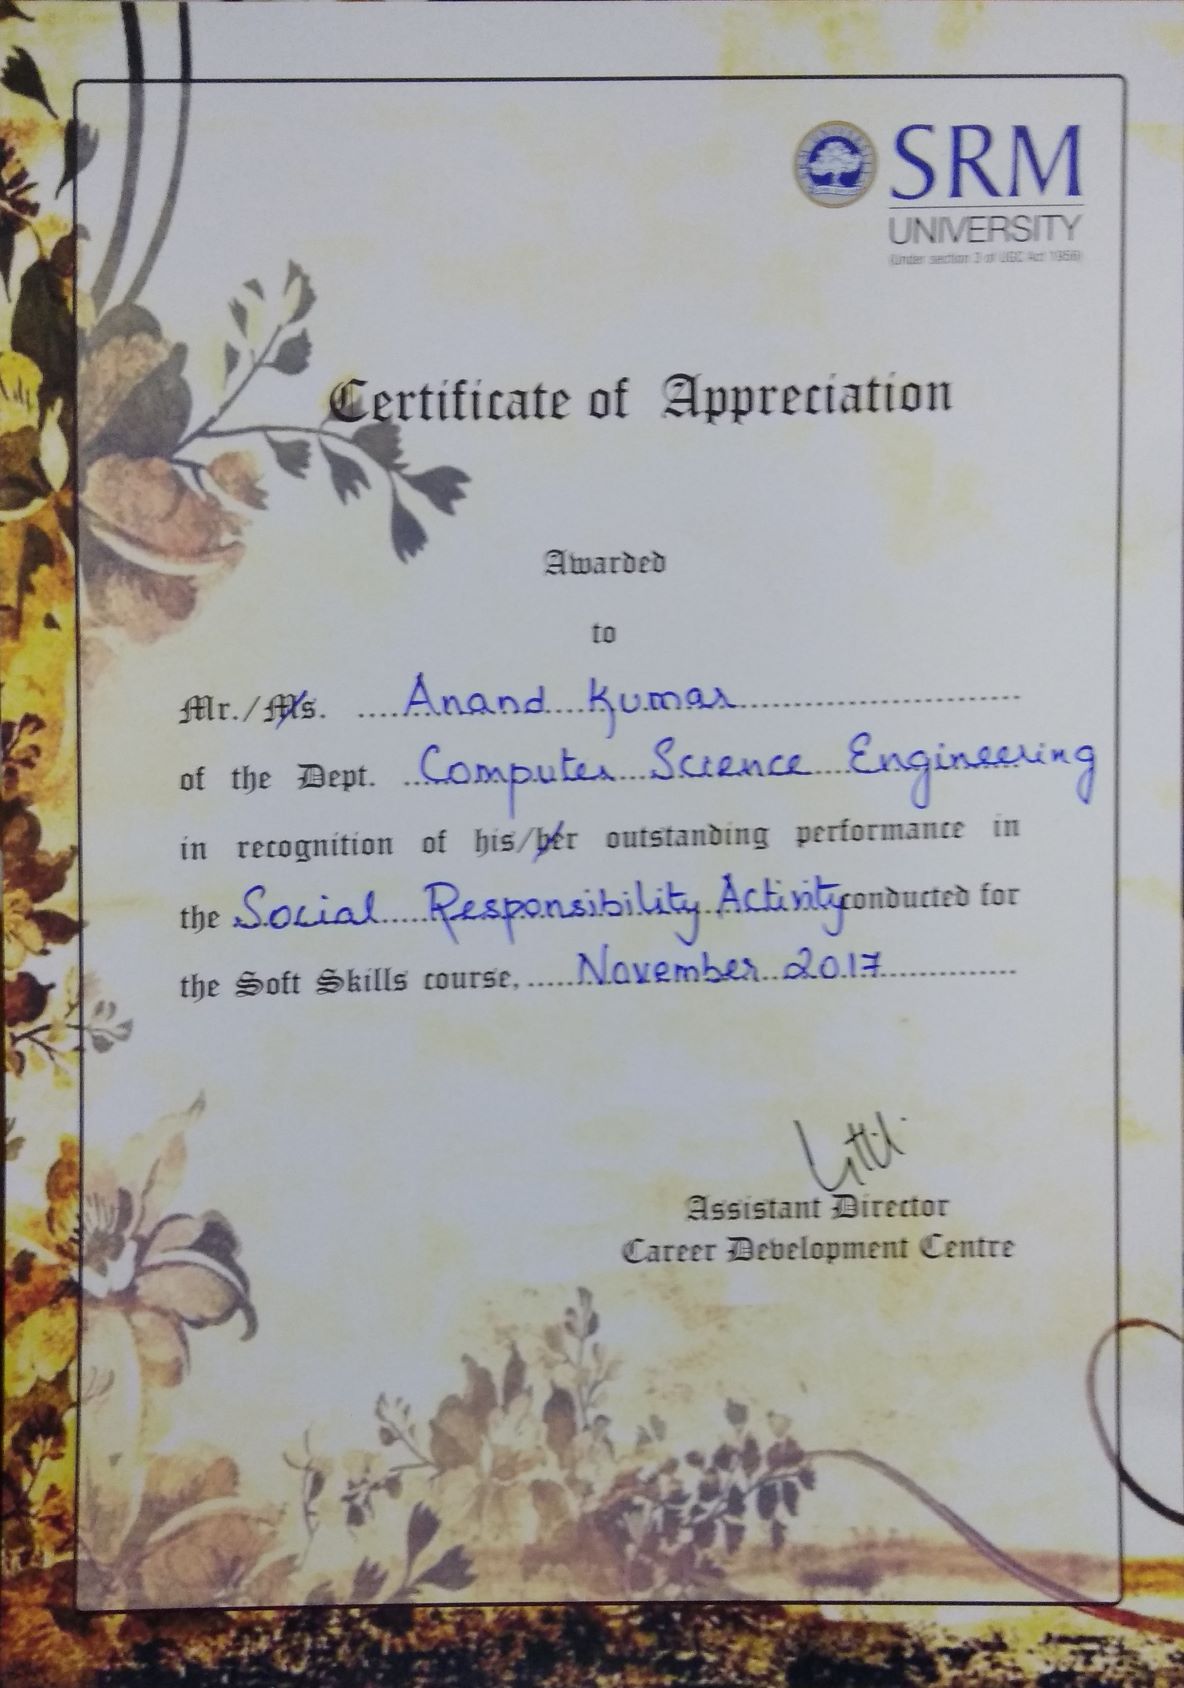 SRM
UNIVERSITY
(Under section 3 of UGC Act 1956)
Certificate of Appreciation
Awarded
to
Mr./Ms. ....Anand....Kumar..............................
of the Dept. ..Computer...Science....Engineering
in recognition of his/her outstanding performance in
the .Social.....Responsibility..Activity conducted for
the Soft Skills course, .....November...2017...............
Assistant Director
Career Development Centre